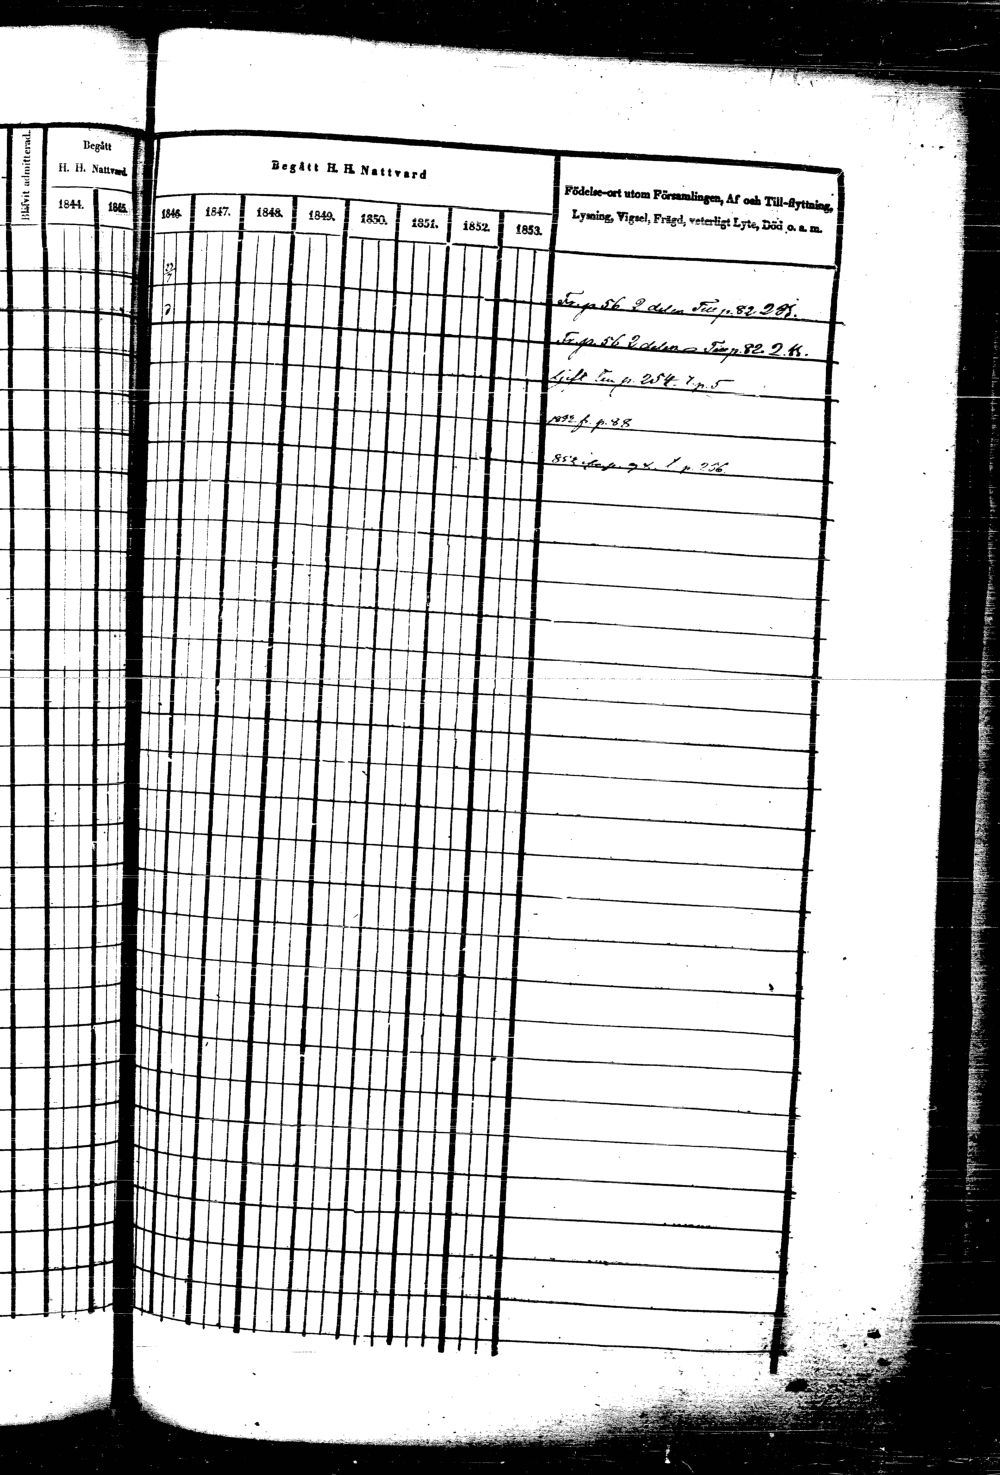 Blifvit admitterad.
Begått
H. H. Nattvard.
1844. 1845.
Begått H. H. Nattvard
1846. 1847. 1848. 1849. 1850. 1851. 1852. 1853.
Födelse-ort utom Församlingen, Af och Till-flyttning,
Lysning, Vigsel, Frägd, veterligt Lyte, Död o. a. m.
Fr. p. 56 2 delen p. 82 2
Fr. p. 56 2 delen p. 82. 2.
Gift p. 254. p. 5
p. 88
p. 256